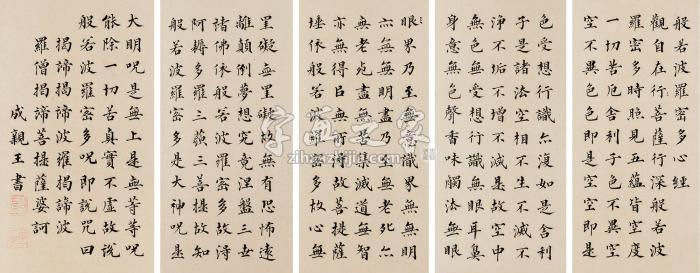 般若波羅密多心經
觀自在行菩薩行深般若波
羅密多時照見五蘊皆空度
一切苦厄舍利子色不異空
空不異色色即是空空即是
色受想行識亦復如是舍利
子是諸法空相不生不滅不
淨不垢不增不減是故空中
無色無受想行識無眼耳鼻
身意無色聲香味觸法無眼
眼界乃至無意識界無無明
亦無無明盡乃至無老死亦
無老死盡無苦集滅道無智
亦無得以無所得故菩提薩
埵依般若波羅密多故心無
罣礙無罣礙故無有恐怖遠
離顛倒夢想究竟涅盤三世
諸佛依般若波羅密多故得
阿耨多羅三藐三菩提故知
般若波羅密多是大神咒是
大明咒是無上是無等等咒
能除一切苦真實不虛故說
般若波羅密多咒即說咒曰
揭諦揭諦波羅揭諦波
羅僧揭諦菩提薩婆訶
成親王書
字画之家